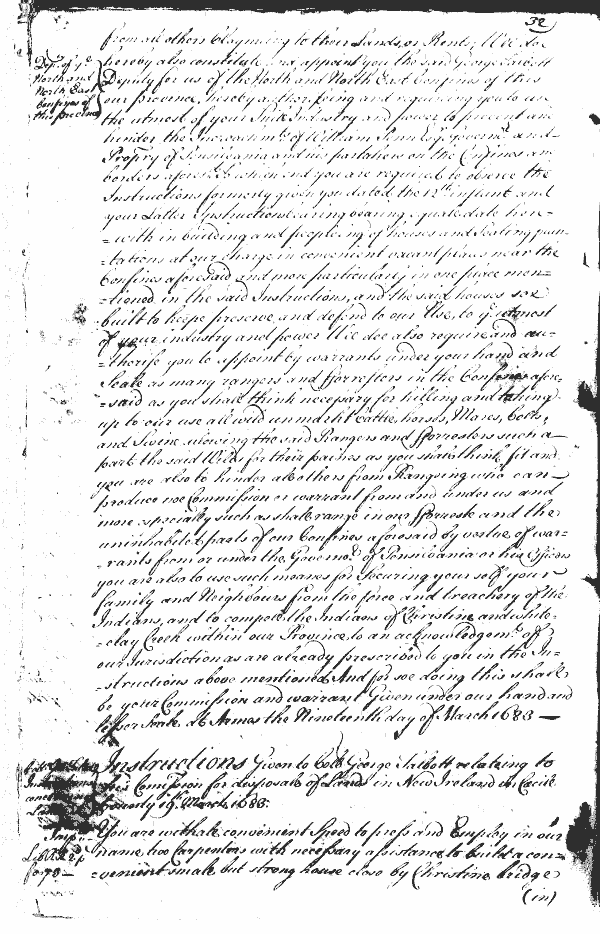 32
from all others Clayming to their Lands, or Rents; Wee doe
hereby also constitute and appoint you the said George Talbott
Dep:ty of ye
North and
North East
Confines of
this Province
Deputy for us of the North and North East Confines of this
our province, hereby authorizing and requireing you to use
the utmost of your Industry and power to prevent and
hinder the Incroachmts of William Penn Esqr Governr and
Propry of Pensilvania and his partakers on the Confines and
borders aforesd wherein and you are required to observe the
Instructions formerly given you dated the 12th instant and
your Latter Instructions bearing equale date here=
=with in building and peopleing of houses and Seating plan=
=tations at our charge in convenient vacant places near the
Confines aforesaid and more particularly in one place men=
=tioned in the said Instructions, and the said houses soe
built to keepe preserve and defend to our Use, to ye utmost
of your industry and power Wee doe also require and au=
=thorise you to appoint by warrants under your hand and
Seale as many rangers and fforresters in the Confines afore=
=said as you shall think necessary for killing and takeing
up to our use all wild unmarkt Cattle, horses, Mares, Colts,
and Swine allowing the said Rangers and fforresters such a
part the said Wilds for their paines as you shall think fit and
you are also to hinder all others from Rangeing who can
produce noe Commission or warrant from and under us and
more especially such as shall range in our fforrests and the
uninhabited parts of our Confines aforesaid by vertue of war=
=rants from or under the Governor of Pensilvania or his Officers
you are also to use such meanes for Secureing your self your
family and Neighbours from the force and treachery of the
Indians, and to compell the Indians of Christine and white=
=clay Creek within our Province to an acknowledgemt of
our Jurisdiction as are already prescribed to you in the In=
=structions above mentioned And for soe doing this shall
be your Commission and warrant Given under our hand and
lesser Seale at Armes the Nineteenth day of March 1683 —
Instructions Given to Coll George Talbott relating to
his Comission for disposall of Lands in New Ireland in Cecill
County 19th March 1683.
You are with all convenient Speed to press and Employ in our
name two Carpenters with necessary assistance to build a con=
=venient small but strong house close by Christine bridge
(in)